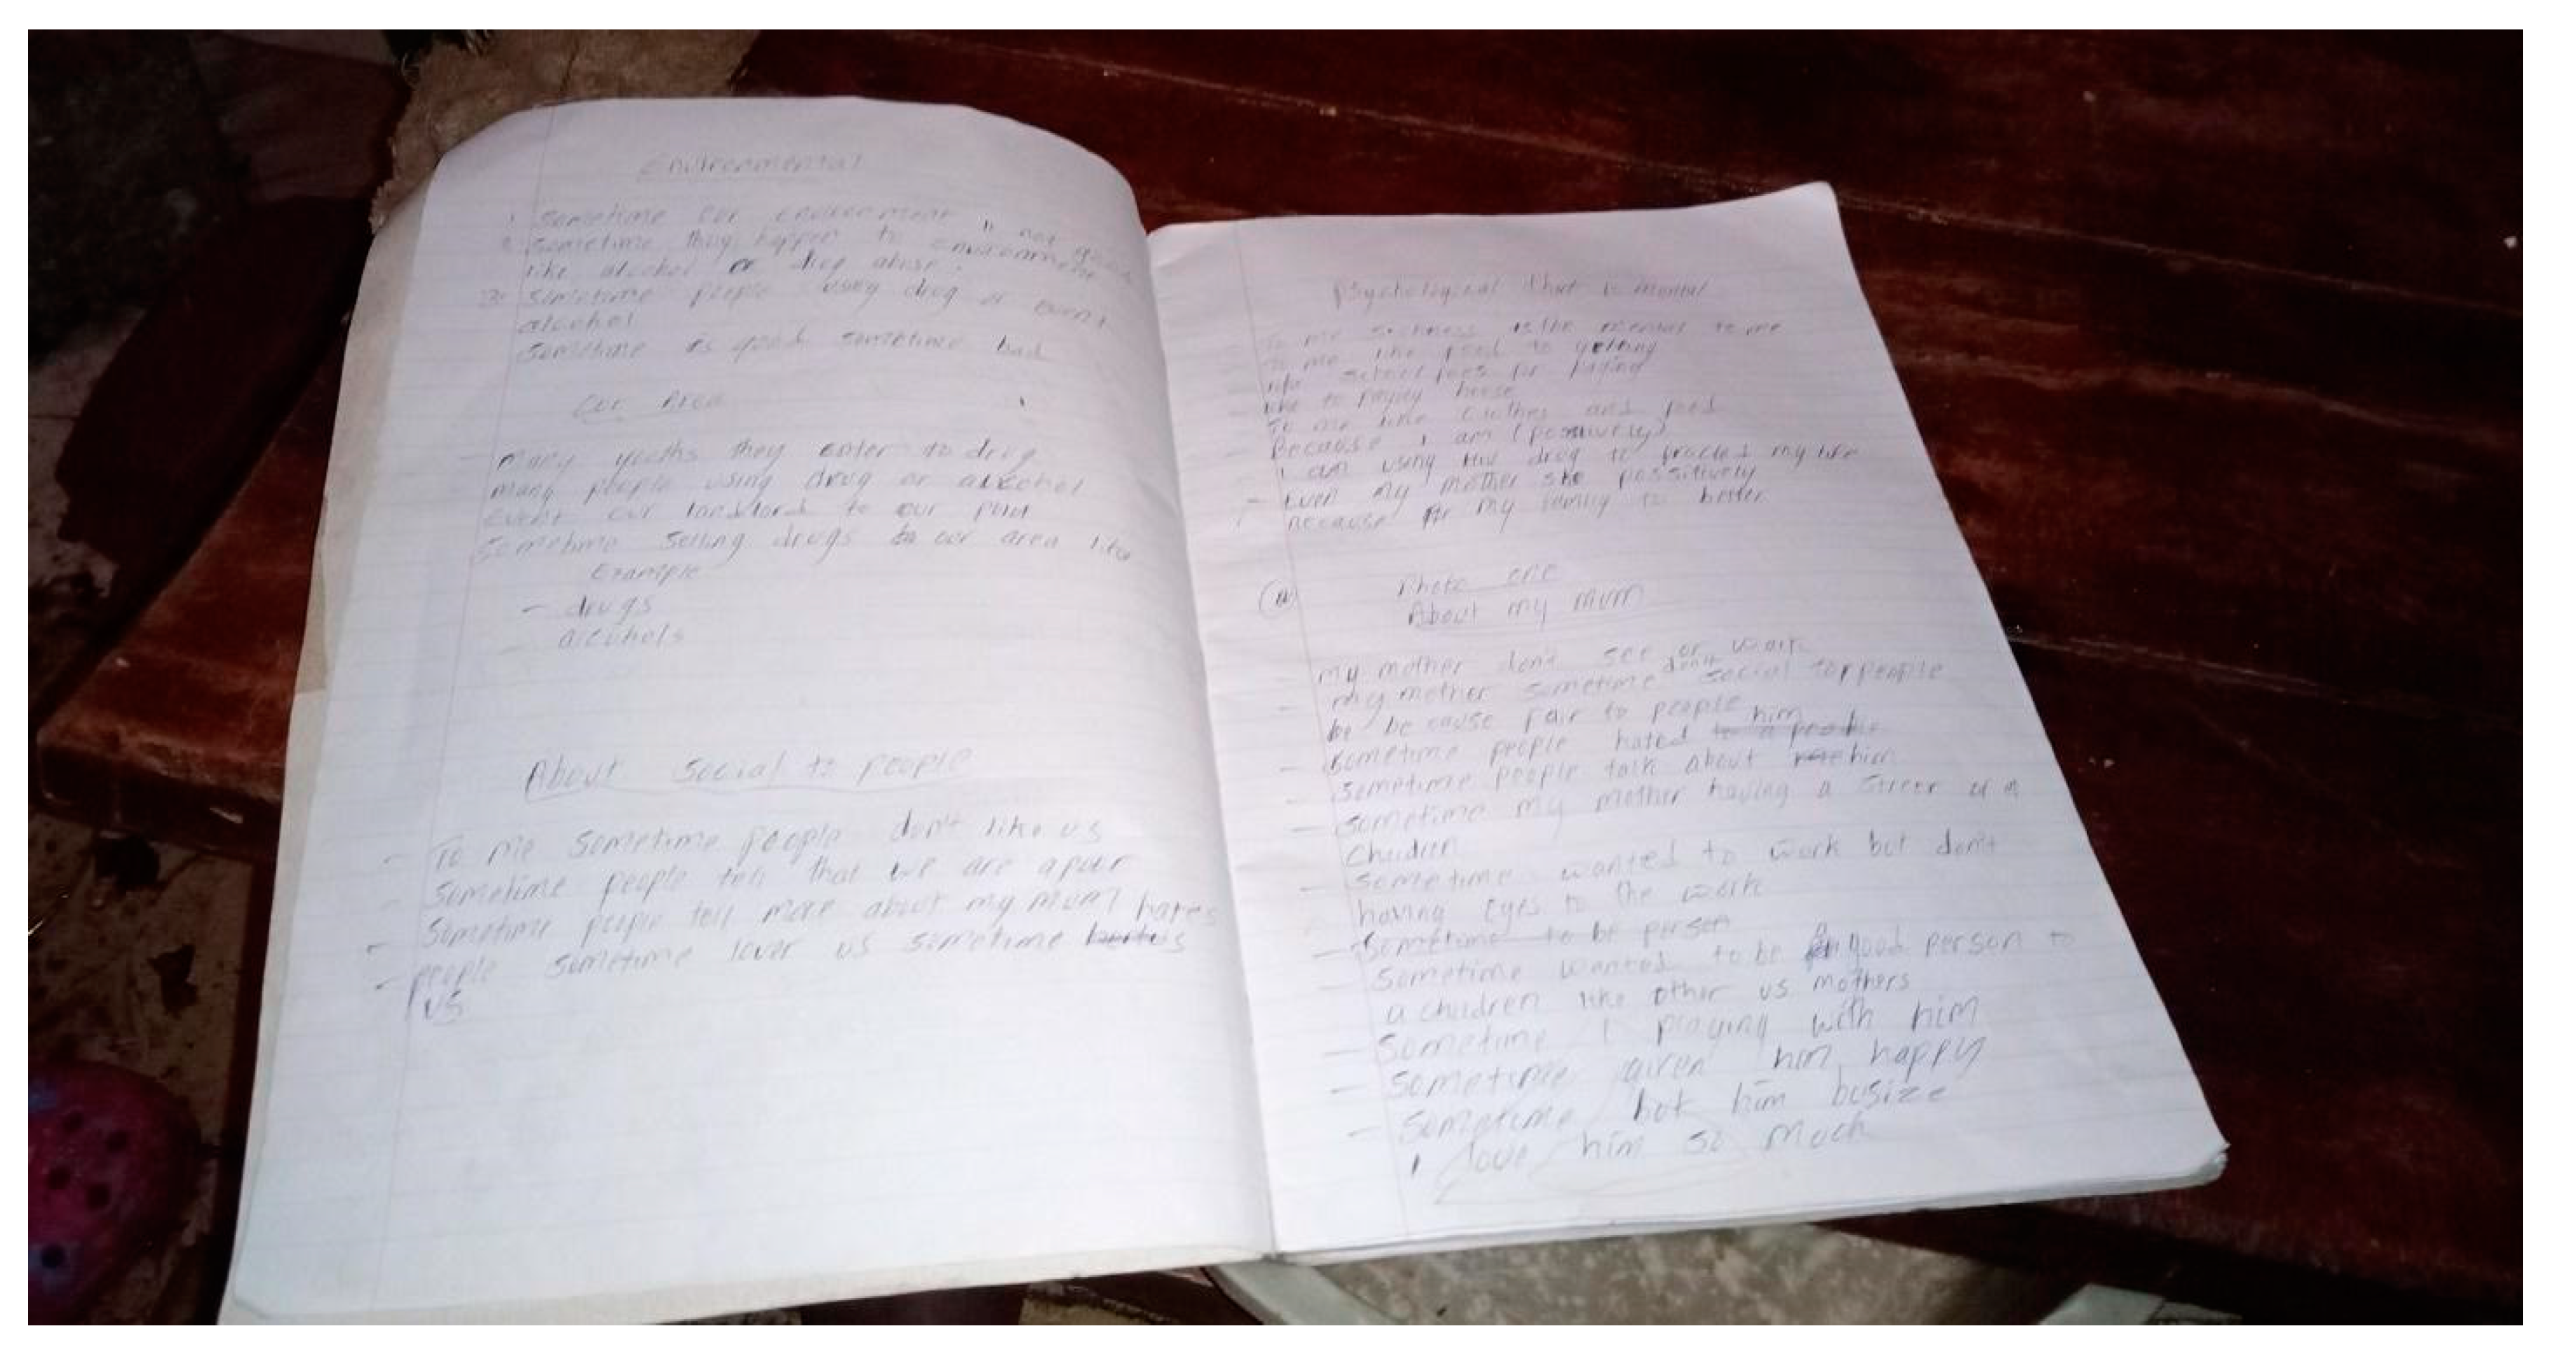 Environmental
1 Sometime our environment is not good
2 Sometime they happen to environment
like alcohol or drug abuse.
3 Sometime people using drug or event
alcohol
Sometime is good sometime bad
Our Area
- Many youths they enter to drug
many people using drug or alcohol
event our landlord to our
Sometime selling drugs to our area like
Example
- drugs
- alcohols
About Social to people
- To me sometime people don't like us
- Sometime people tell that we are apour
- Sometime people tell more about my mum
- people sometime lover us sometime hates
us
Psychological that is mental
To me sickness is the mental to me
To me like food to getting
like school fees for paying
- like to paying house
To me like clothes and food
- Because I am (possitively)
I am using HIV drug to my life
- Even my mother she possitively
- because for my family to better
(a) Photo one
About my mum
my mother don't see or work
- my mother sometime don't social to people
be because fair to people
- Sometime people hated him
- Sometime people talk about him
- Sometime my mother having a of a
Children
- Sometime wanted to work but don't
having eyes to the work
- Sometime to be person
- Sometime wanted to be a good person to
a children like other us mothers
- Sometime I praying with him
- Sometime given him happy
- Sometime but him busize
I love him so much